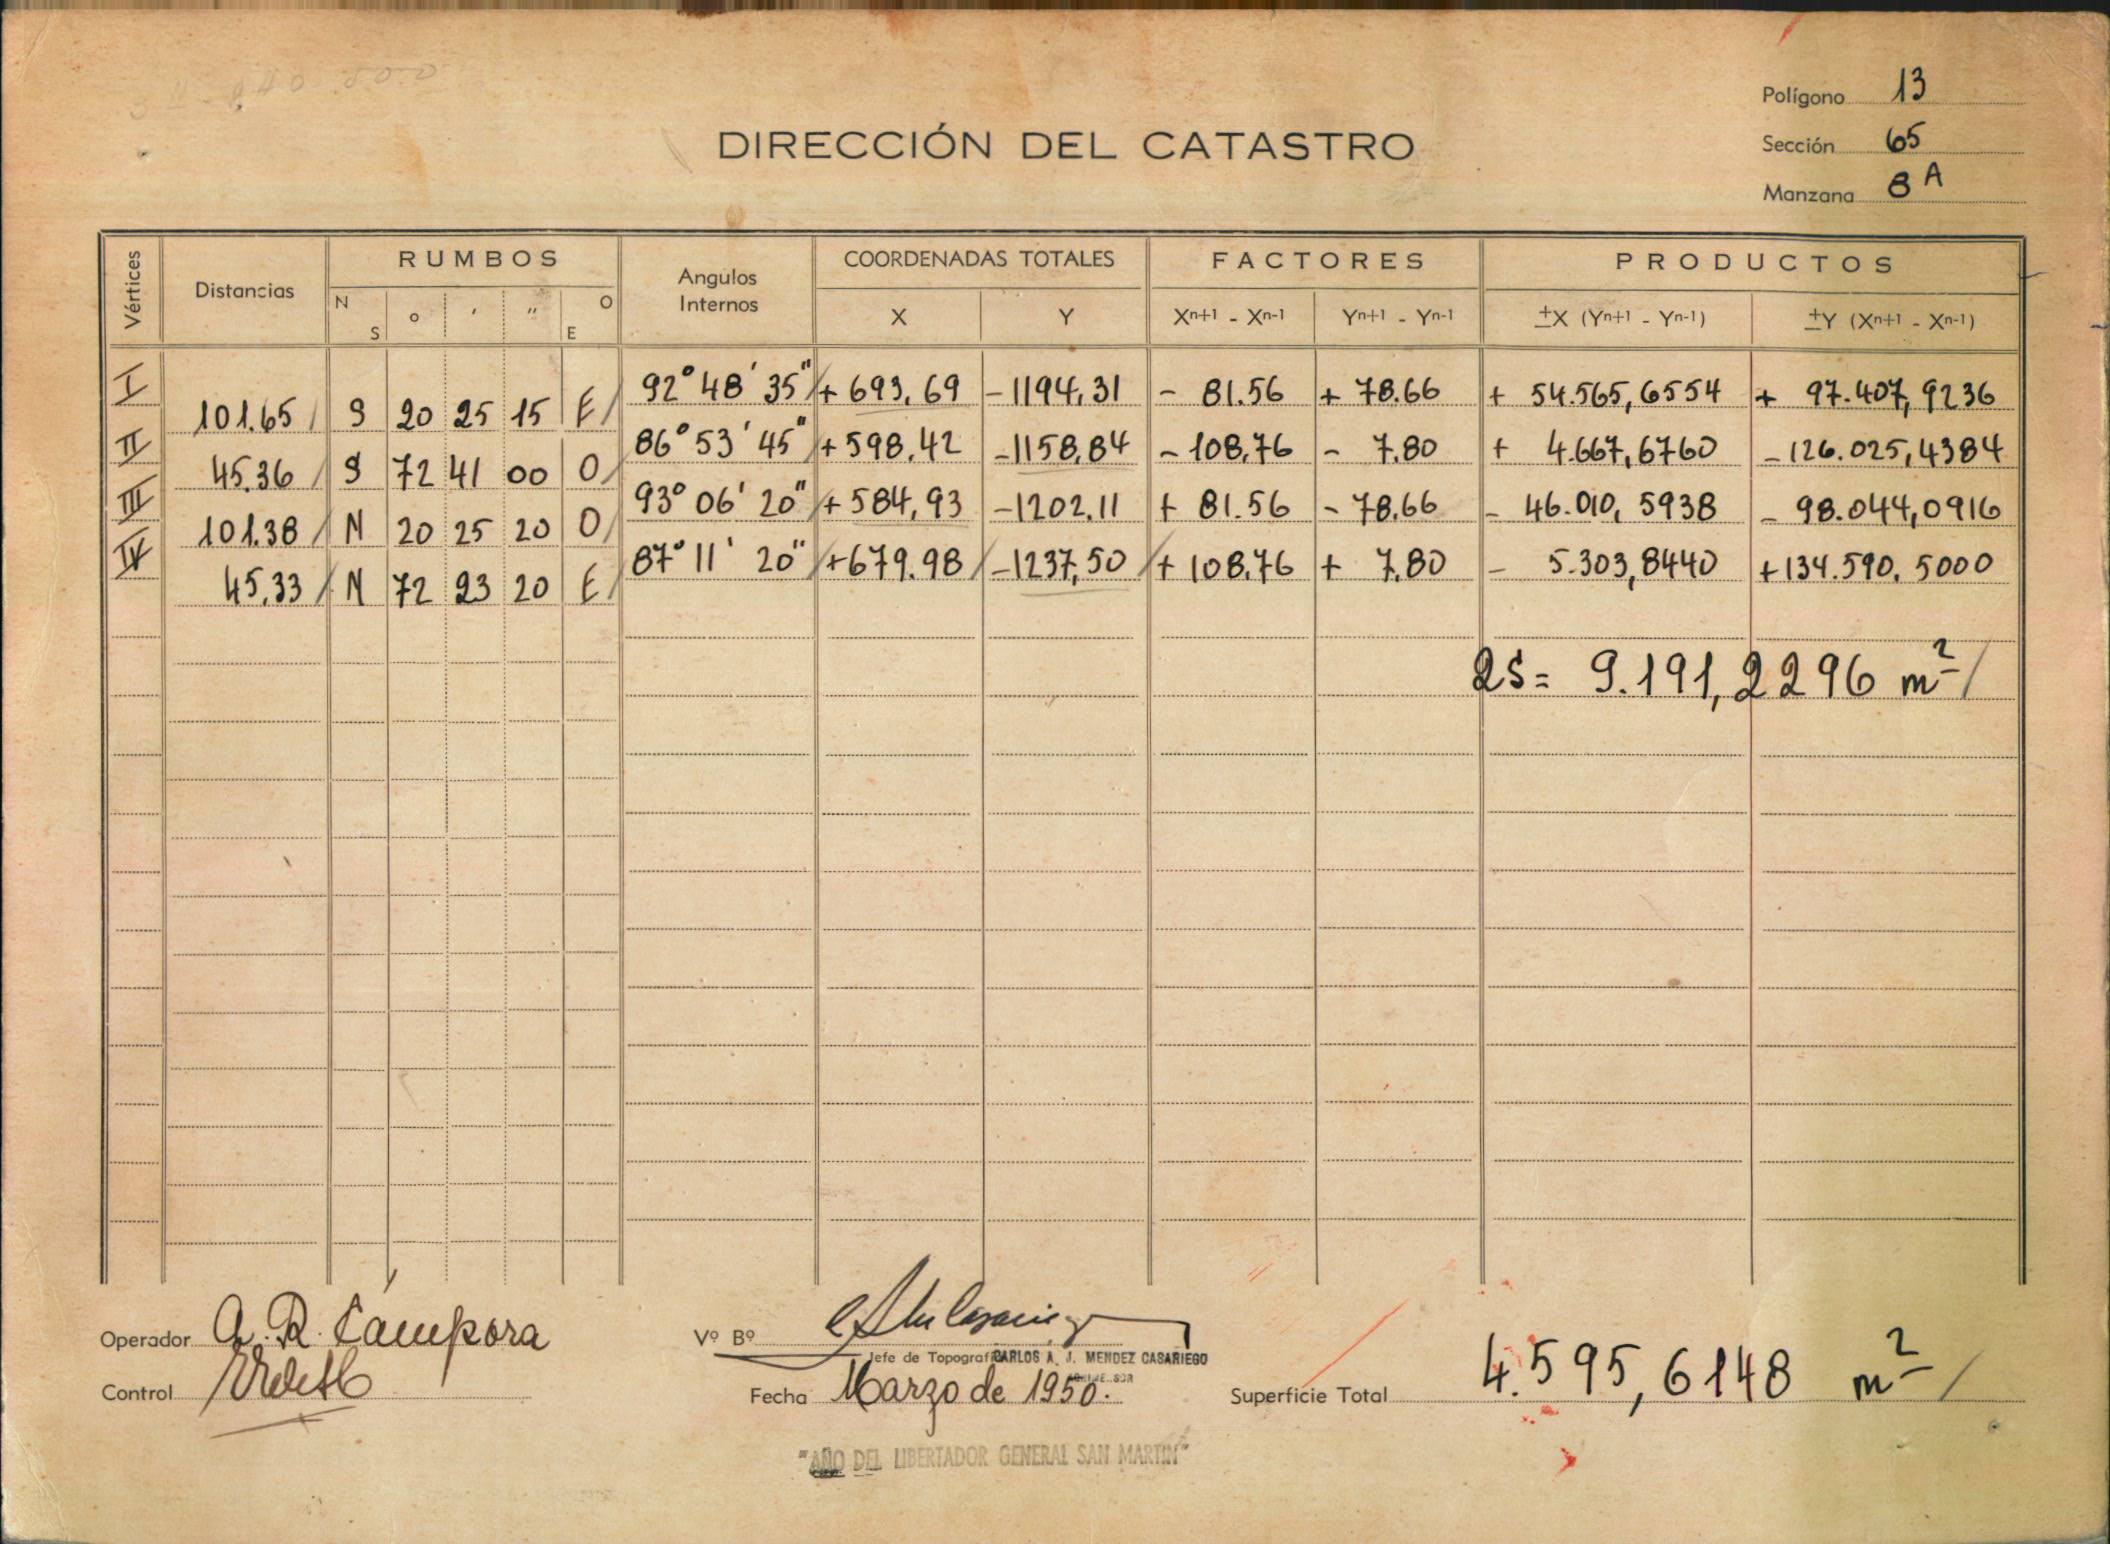 Polígono 13
DIRECCIÓN DEL CATASTRO
Sección 65
Manzana 8 A
Vértices Distancias RUMBOS N S ° ' " O E Angulos Internos COORDENADAS TOTALES X Y FACTORES Xn+1 - Xn-1 Yn+1 - Yn-1 PRODUCTOS ±X (Yn+1 - Yn-1) ±Y (Xn+1 - Xn-1)
I 92° 48' 35" + 693,69 - 1194,31 - 81.56 + 78.66 + 54.565,6554 + 97.407,9236
101.65 S 20 25 15 E
II 86° 53' 45" + 598,42 - 1158,84 - 108,76 - 7.80 + 4.667,6760 - 126.025,4384
45.36 S 72 41 00 O
III 93° 06' 20" + 584,93 - 1202.11 + 81.56 - 78.66 - 46.010,5938 - 98.044,0916
101.38 N 20 25 20 O
IV 87° 11' 20" + 679.98 - 1237,50 + 108,76 + 7,80 - 5.303,8440 + 134.590,5000
45,33 N 72 23 20 E
2S = 9.191,2296 m²
Operador A. R. Cámpora
Vº Bº
Jefe de Topografía CARLOS A. J. MENDEZ CASARIEGO
Control
Fecha Marzo de 1950.
Superficie Total 4.595,6148 m²
"AÑO DEL LIBERTADOR GENERAL SAN MARTIN"